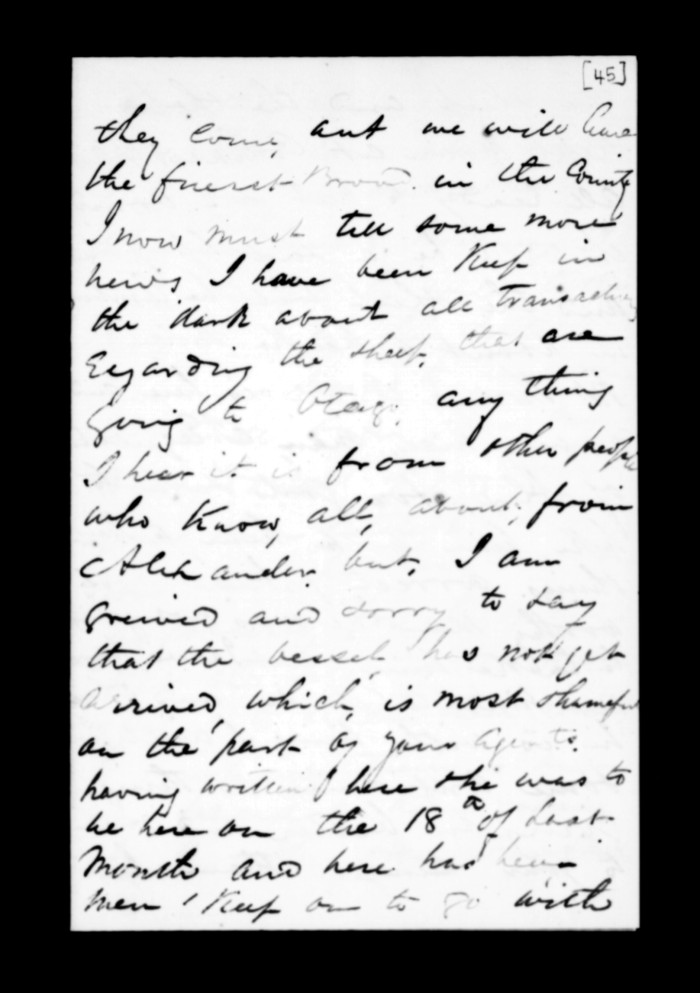 [45]
they come, and we will have
the finest Brood in the County
I now must tell some more
news I have been Keep in
the dark about all transactions
regarding the sheep, that are
going to Otago, any thing
I hear it is from other people
who Know, all, about, from
Alexander, but, I am
greived and sorry to say
that the vessel, has not yet
arrived, which, is most shameful
on the part of your agents.
having written here she was to
be here on the 18th of Last
Month and here has been
men Keep on to go with